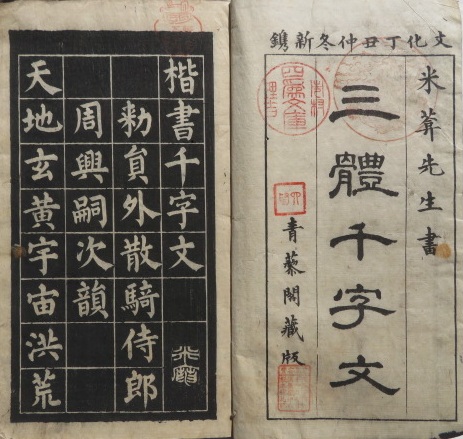 文化丁丑仲冬新鐫
米葊先生書
三體千字文
青藜閣藏版
楷書千字文
勑員外散騎侍郎
周興嗣次韻
天地玄黃宇宙洪荒